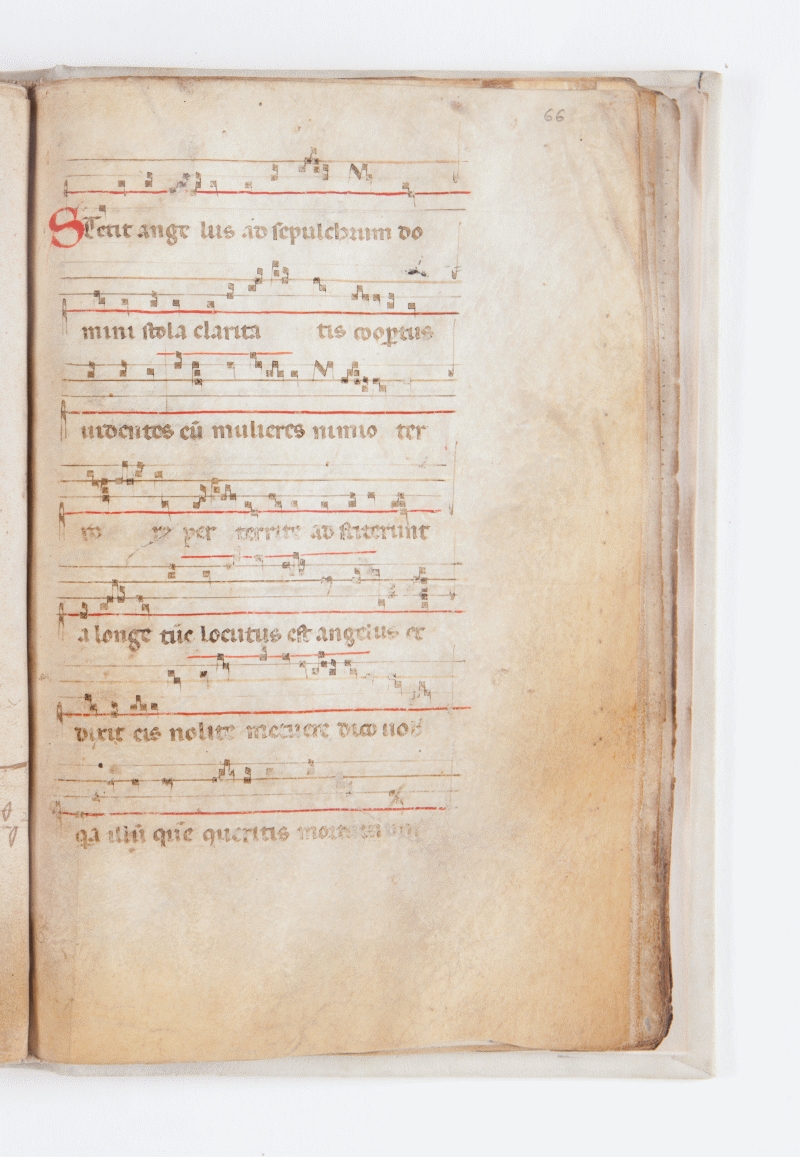 66
Stetit ange lus ad sepulchrum do
mini stola clarita tis coop̱tus
uidentes eū mulieres nimio ter
ro re per territe ad stiterunt
a longe tūc locutus est angelus et
dixit eis nolite metuere dico uob̄
q̓a illū quē queritis mortuum